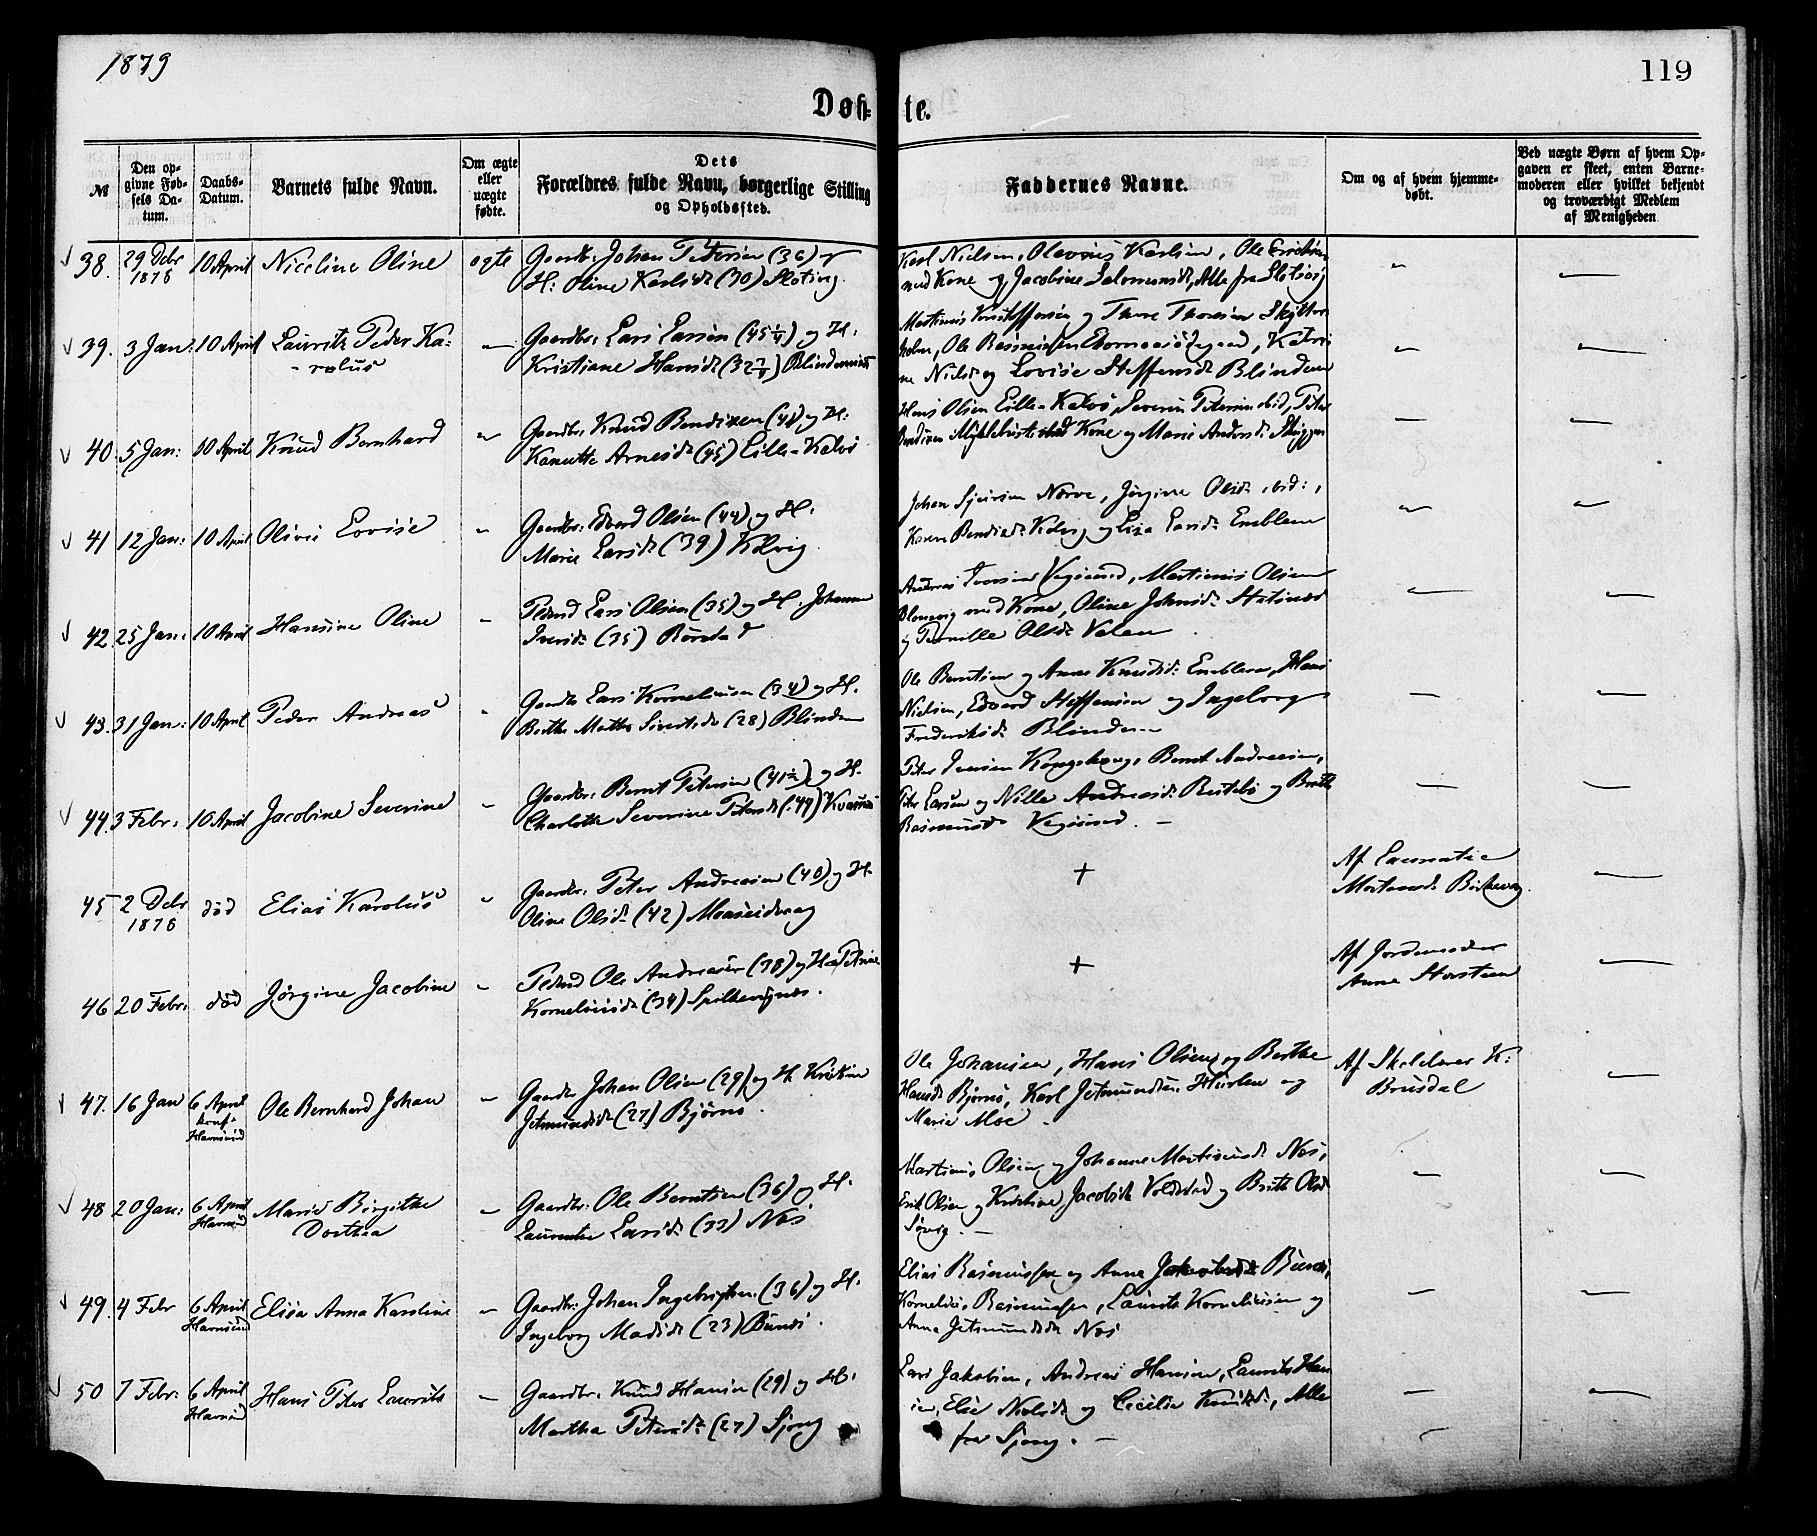 1879
119
Døbte.
№
Den opgivne Fødsels Datum.
Daabs-Datum.
Barnets fulde Navn.
Om ægte eller uægte fødte.
Dets Forældres fulde Navn, borgerlige Stilling og Opholdssted.
Faddernes Navne.
Om og af hvem hjemmedøbt.
Ved uægte Børn af hvem Opgaven er skeet, enten Barnemoderen eller hvilket bekjendt og troværdigt Medlem af Menigheden
38. 29 Debr 1878 10 April Niceline Oline ægte Gaardbr: Johan Petersen (36) og
H: Oline Karlsd: (30) Slotsvig
Karl Nielsen, Olavus Karlsen, Ole
med Kone og Jacobine Salomonsd:, Alle fra Slotsvig
39. 3 Jan: 10 April Laurits Peder Ka-
rolus
Gaardbr: Lars Larsen (45 1/4) og H:
Kristiane Hansd: (32 3/4) Blindemsnes
Martinus Kristoffersen og Thore Thoresen
Ole Rasmussen
Nielsd: og Lovise Steffensd: Blindem
40. 5 Jan: 10 April Knud Bernhard
Gaardbr: Knud Bendixen (48) og H:
Kanutte Arnesd: (45) Lille-Kalvø
Hans Olsen Lille-Kalvø, Severin Petersen ibid, Peter
Bendixen Myklebust med Kone og Marie Andersd:
41 12 Jan: 10 April Olive Lovise
Gaardbr: Edvard Olsen (44) og H:
Marie Larsd: (39) Kolvig
Johan Norve, Jørgine Olsd: ibid:,
Karen Bendixd: Kolvig og Lisa Larsd: Emblem
42. 25 Jan: 10 April Hansine Oline
Lars Olsen (35) og H: Johanne
Iversd: (35) Børstad
Andreas Iversen Vegsund, Martinus Olsen
med Kone, Oline Johnsd:
og Pernille Olsd: Valen
43. 31 Jan: 10 April Peder Andreas
Gaardbr: Lars Korneliussen (34) og H:
Berthe Marthe Sivertsd: (28) Blindem
Ole Berntsen og Anne Knudsd: Emblem, Hans
Nielsen, Edvard Steffensen og Ingeborg
Frederiksd: Blindem
44. 3 Febr: 10 April Jacobine Severine
Gaardbr: Bernt Petersen (41 1/2) og H:
Charlotte Severine Petersd: (44) Kvasnes
Peter Iversen Kongshaug, Bernt Andreassen,
Peter Larsen og Nille Andreasd: og Brithe
Rasmusd: Vegsund.
45 2 Debr 1878 død Elias Karolus
Gaardbr: Peter Andreasen (40) og H:
Oline Olsd: (42) Maaseidvaag
+
Af Laurentie
Mortensd: Birkevog
46 20 Febr: død Jørgine Jacobine
Ole Andreasen (38) og H: Petrine
Korneliusd: (34) Spilkevignes.
+
Af Jordemoder
Anne Storsteen
47. 16 Jan 6 April Havnsund Ole Bernhard Johan
Gaardbr: Johan Olsen (29) og H: Kristine
Jetmundsd: (27) Bjørnø.
Ole Johansen, Hans Olsen og Berthe
Hansd: Bjørnø, Karl Jetmundsen og
Marie Moe.
Af Skolelærer K:
Brusdal
48 20 Jan: 6 April Havnsund Marie Birgitte
Dorthea
Gaardbr: Ole Berntsen (36) og H:
Laurentse Larsd: (33) Næs
Martinus Olsen og Johanne Martinusd: Næs,
Erik Olsen og Kristine Jacobsd: Voldstad og Brithe Olsd:
Søvig.
49. 4 Febr 6 April Havnsund Elisa Anna Karoline
Gaardbr: Johan Ingebrigtsen (36) og H:
Ingeborg Madsd: (23) Bunes.
Elias Rasmussen og Anne Bunes,
Kornelius Rasmussen, Laurits Korneliussen og
Anne Jetmundsd: Næs
50 7 Febr: 6 April Havnsund Hans Peter Laurits
Gaardbr: Knud Hansen (29) og H:
Martha Petersd: (27) Sjong
Lars Jakobsen, Andreas Hansen, Laurits Han-
sen, Else Nielsd: og Cecilie Knudsd:, Alle
fra Sjong.